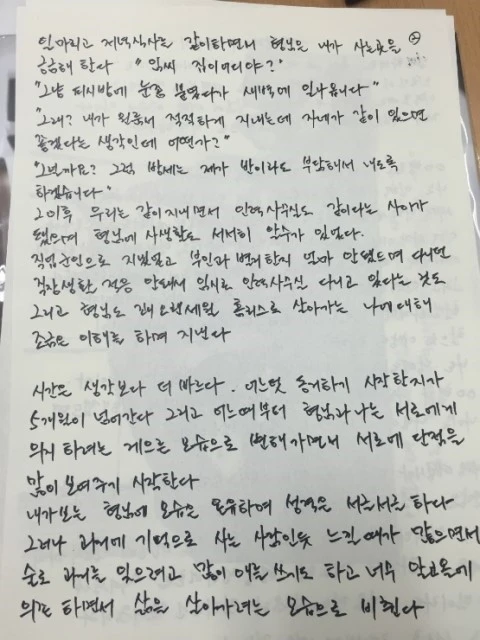 일마리고 저녁식사는 같이하면서 형님은 내가 사는곳을 ②
궁금해 한다 "임씨 집이어디야?"
"그냥 피시방에 눈좀 붙였다가 새벽에 일나옵니다"
"그래? 내가 원룸서 적적하게 지내는데 자네가 같이 있으면
좋겠다는 생각인데 어떤가?"
"그럴까요? 그럼 방세는 제가 반이라도 부담해서 내도록
하겠습니다"
그이후 우리는 같이지내면서 인력사무실도 같이다는 사이가
됐으며 형님에 사생활도 서서히 알수가 있었다.
직업군인으로 지냈었고 부인과 별거한지 얼마 안됐으며 다시면
직장생활 적응 안돼서 임시로 인력사무실 다니고 있다는 것도
그리고 형님도 꽤 오랜세월 홈리스로 살아가는 나에대해
조금은 이해를 하며 지낸다
시간은 생각보다 더 빠르다. 어느덧 동거하기 시작한지가
5개월이 넘어간다 그리고 어느때부터 형님과 나는 서로에게
의지 하려는 게으른 모습으로 변해가면서 서로에 단점을
많이 보여주기 시작한다
내가보는 형님에 모습은 온유하며 성격은 서글서글 하다
그러나 과거에 기억으로 사는 사람인듯 느낄때가 많으면서
술로 과거를 잊으려고 많이 애를 쓰기도 하고 너무 알코올에
의존 하면서 삶을 살아가려는 모습으로 비춘다